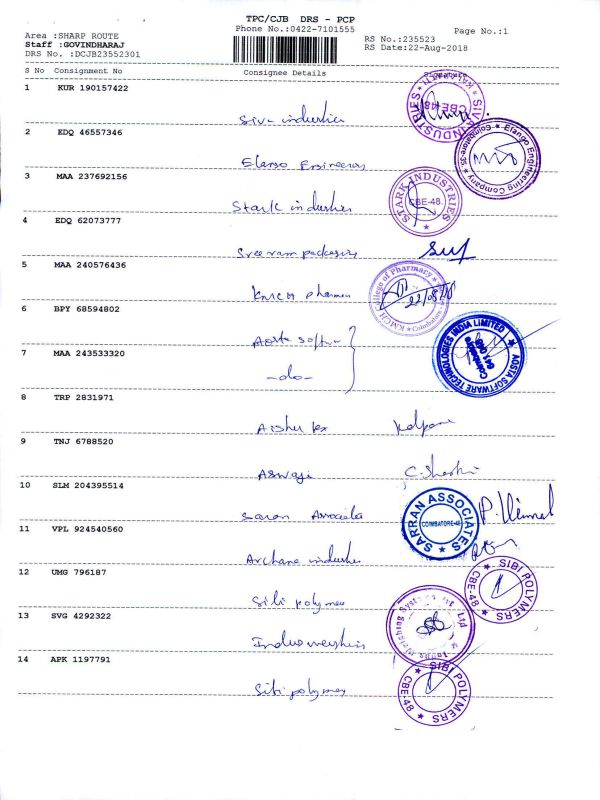 TPC/CJB DRS - PCP
Phone No.:0422-7101555
Page No.:1
Area :SHARP ROUTE
Staff :GOVINDHARAJ
DRS No. :DCJB23552301
RS No.:235523
RS Date:22-Aug-2018
S No Consignment No Consignee Details
1 KUR 190157422
Siva industries
SIVA INDUSTRIES CBE-48
2 EDQ 46557346
Elango Engineering
Elango Engineering Company Coimbatore-35
3 MAA 237692156
Stark industries
STARK INDUSTRIES CBE-48
4 EDQ 62073777
Sree ram packaging
5 MAA 240576436
KMCH pharmacy
KMCH College of Pharmacy Coimbatore
22/08/18
6 BPY 68594802
Aosta softw
7 MAA 243533320
-do-
AOSTA SOFTWARE TECHNOLOGIES INDIA LIMITED Coimbatore 641 048
8 TRP 2831971
Kalpana
9 TNJ 6788520
Aswaji
10 SLM 204395514
Saran Associates
SARRAN ASSOCIATES COIMBATORE-48
P. Vimal
11 VPL 924540560
Archana industries
12 UMG 796187
Sibi polymers
SIBI POLYMERS CBE-48
13 SVG 4292322
Indus weighing
Weighing Systems Pvt. Ltd
14 APK 1197791
Sibi polymers
SIBI POLYMERS CBE-48